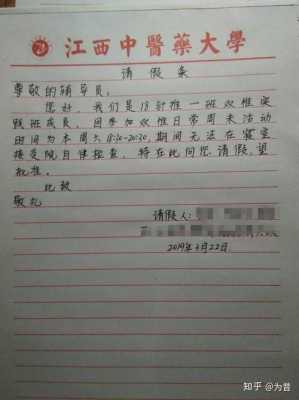 江西中醫藥大學
请假条
尊敬的辅导员:
您好,我们是18针推一班双惟实
践班成员,因参加双惟日常周末活动
时间为本周六18:30-20:30,期间无法在寝室
接受院自律检查,特在此向您请假,望
批准。
此致
敬礼
请假人:
2019年3月22日
知乎 @为昔